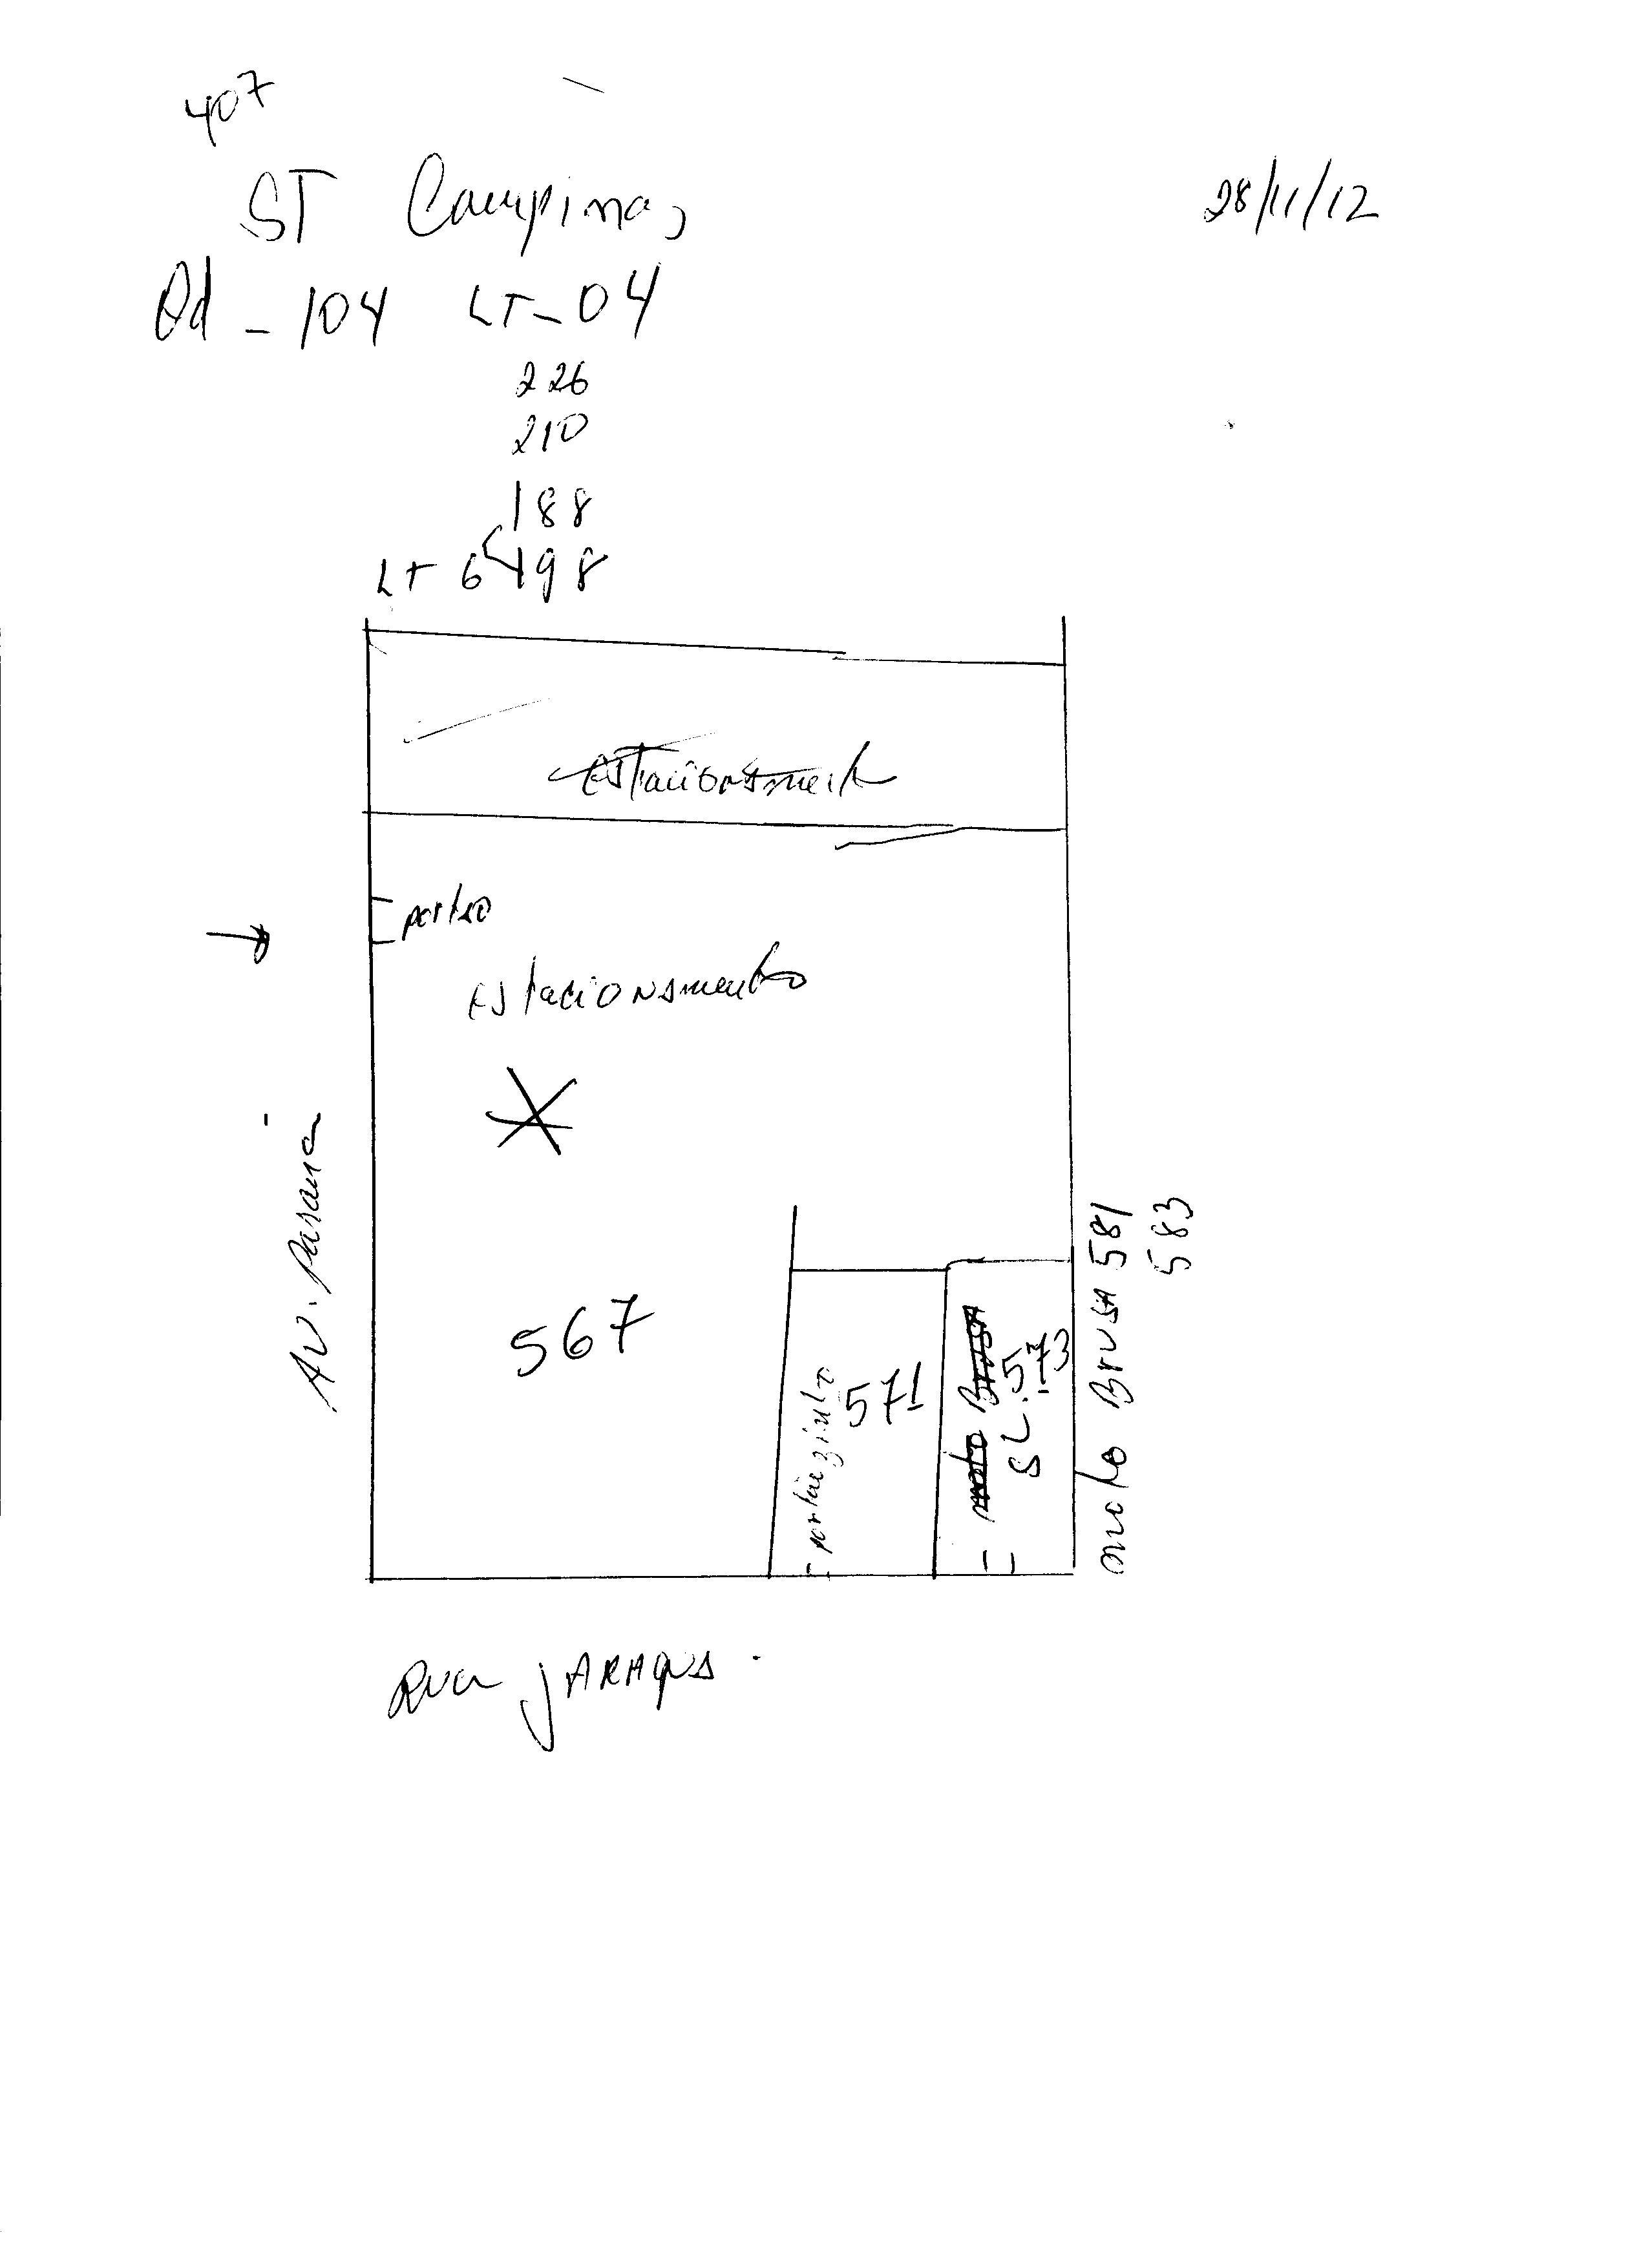 407
ST Campinas
28/11/12
Qd - 104 LT - 04
226
210
188
LT 6 198
Estacionament
portao
Estacionamento
Av. Parana
567
571
SL. 573
moto Brusa 581
583
Rua JARAGUA.